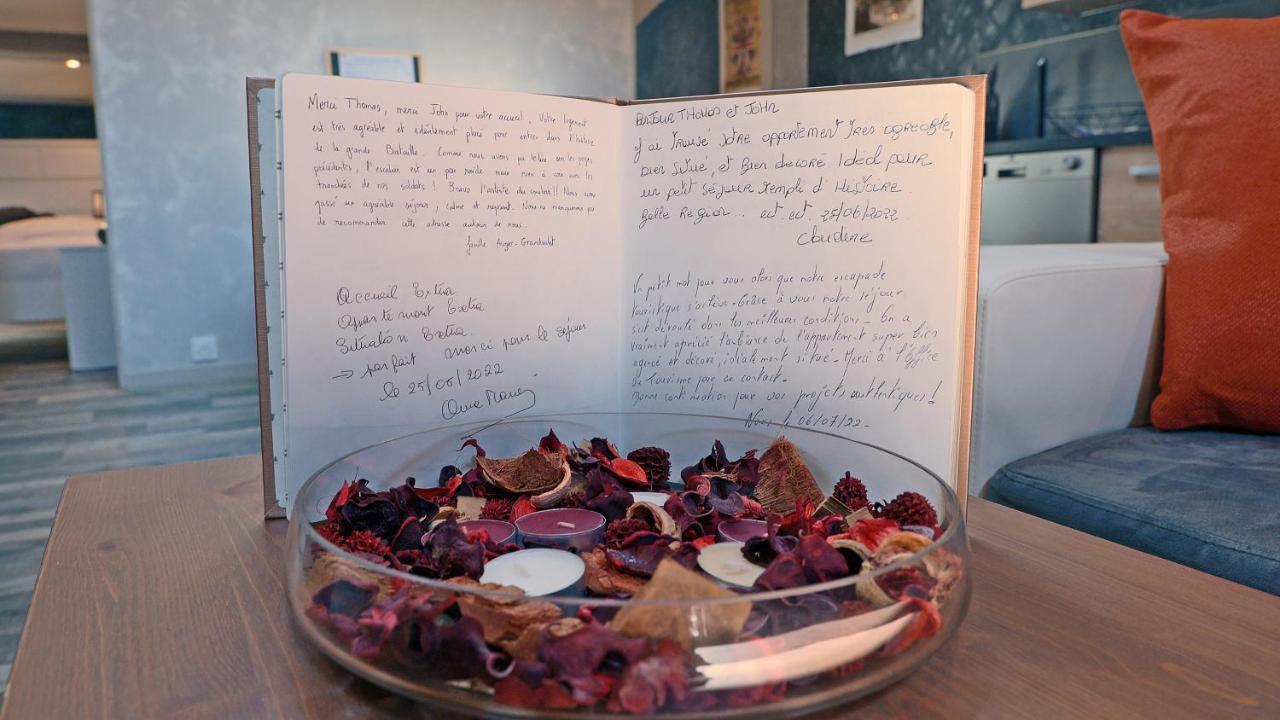 Merci Thomas, merci John pour votre accueil. Votre logement
est très agréable et idéalement placé pour entrer dans l'histoire
de la grande Bataille. Comme nous avons pu le lire sur les pages
précédentes, l'escalier est un peu raide mais rien à voir avec les
tranchées de nos soldats ! Bravo l'artiste du couloir !! Nous avons
passé un agréable séjour, calme et reposant. Nous ne manquerons pas
de recommander cette adresse autour de nous.
famille Auger-
Accueil Extra
Appartement Extra
Situation Extra
→ parfait merci pour le séjour
le 25/06/2022
BONJOUR THOMAS et JOHN
J'ai trouvé votre appartement très agréable,
bien situé, et bien décoré Idéal pour
un petit séjour rempli d'Histoire.
Belle Région... 25/06/2022
Claudine
Un petit mot pour vous alors que notre escapade
touristique s'achève. Grâce à vous notre séjour
s'est déroulé dans les meilleures conditions. On a
vraiment apprécié l'ambiance de l'appartement super bien
agencé et décoré, idéalement situé. Merci à l'Office
de Tourisme pour ce contact.
Bonne continuation pour vos projets authentiques !
le 06/07/22.